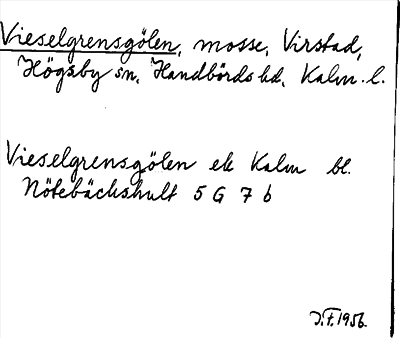 Vieselgrensgölen, mosse, Virstad,
Högsby sn, Handbörds hd, Kalm. l.
Vieselgrensgölen ek Kalm bl.
Nötebäckshult 5 G 7 b
J.F. 1956.